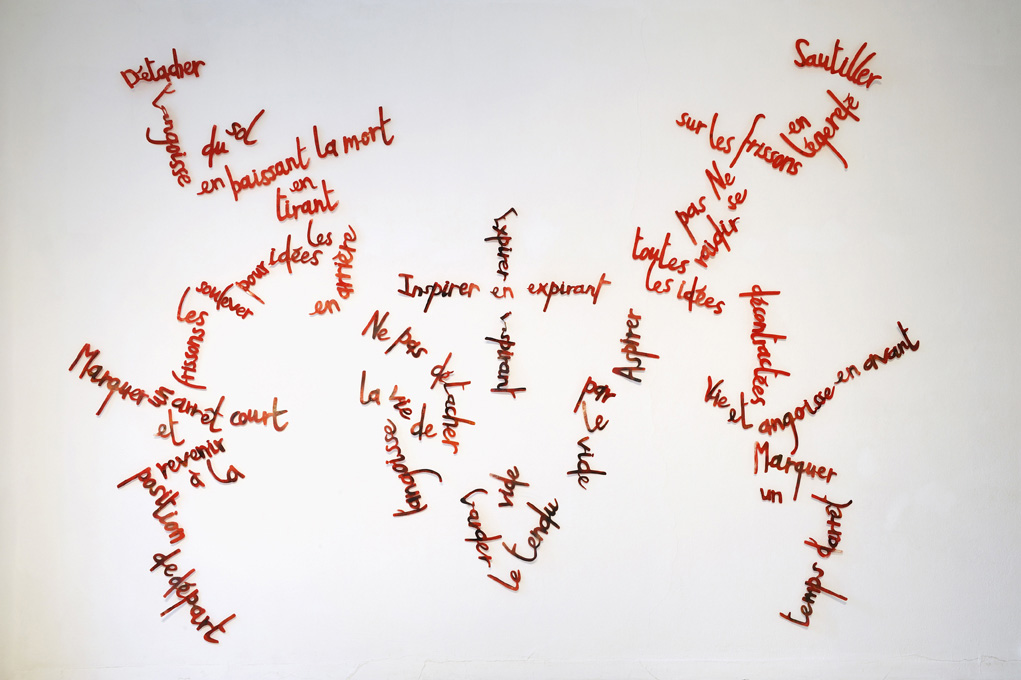 Détacher
l'angoisse
du sol
en baissant la mort
en
tirant
les
idées
en arrière
pour
soulever
les
soucis
Marquer
un arrêt court
et
revenir
à la
position
de départ
Expirer
Inspirer en expirant
inspirant
Ne pas
détacher
la vie de
l'angoisse
Garder
le
vide
tendu
Aspirer
par
le
vide
Sautiller
en
légereté
sur les frissons
Ne
pas se
raidir
toutes
les idées
décontractées
Vie
et angoisse en avant
Marquer
un
temps
d'arrêt